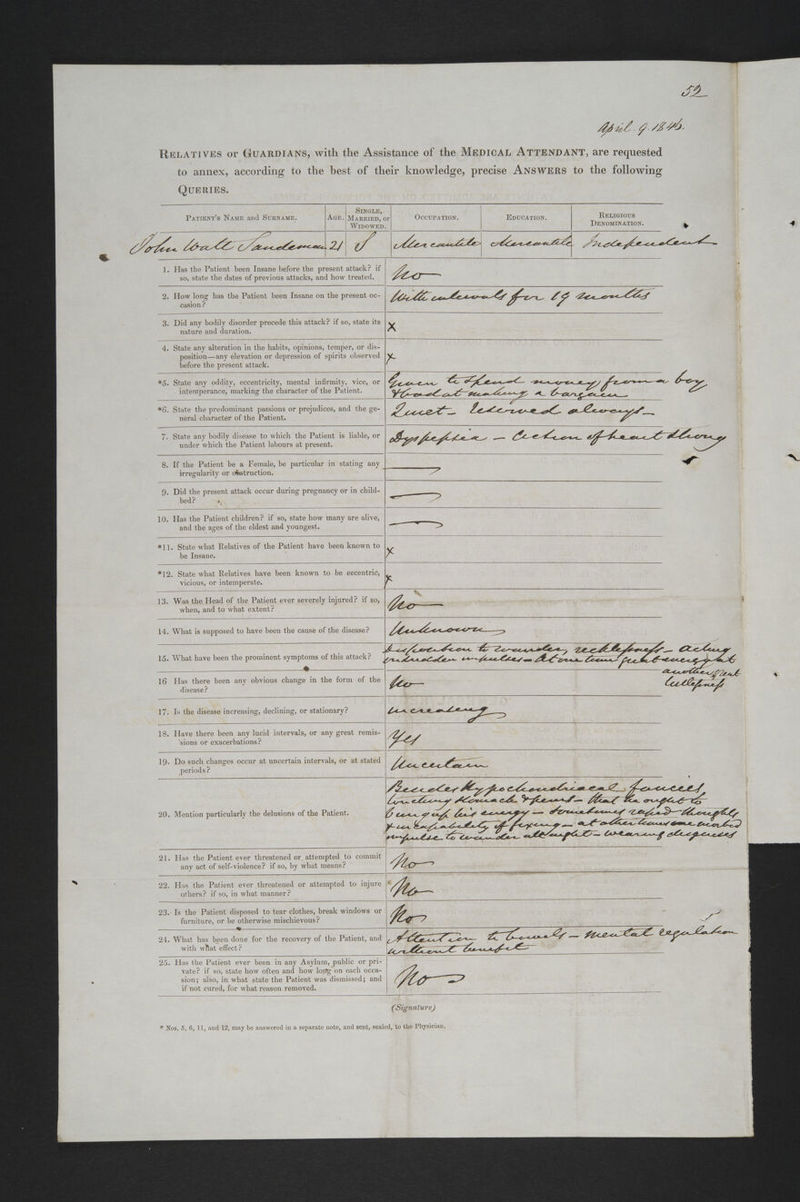 52
April 9. 1846.
RELATIVES or GUARDIANS, with the Assistance of the MEDICAL ATTENDANT, are requested
to annex, according to the best of their knowledge, precise ANSWERS to the following
QUERIES.
PATIENT'S NAME and SURNAME. AGE. SINGLE, MARRIED, or WIDOWED. OCCUPATION. EDUCATION. RELIGIOUS DENOMINATION.
John Watt Sandeman 21 S Mercantile Mercantile Independent
1. Has the Patient been Insane before the present attack? if
so, state the dates of previous attacks, and how treated.
No
2. How long has the Patient been Insane on the present oc-
casion?
With intervals for 19 months
3. Did any bodily disorder precede this attack? if so, state its
nature and duration.
X
4. State any alteration in the habits, opinions, temper, or dis-
position—any elevation or depression of spirits observed
before the present attack.
X
*5. State any oddity, eccentricity, mental infirmity, vice, or
intemperance, marking the character of the Patient.
Given to spend money from a boy
& bad at making a bargain
*6. State the predominant passions or prejudices, and the ge-
neral character of the Patient.
Quiet - reserved always -
7. State any bodily disease to which the Patient is liable, or
under which the Patient labours at present.
Dyspepsia - Action of heart strong
8. If the Patient be a Female, be particular in stating any
irregularity or obstruction.
9. Did the present attack occur during pregnancy or in child-
bed?
10. Has the Patient children? if so, state how many are alive,
and the ages of the eldest and youngest.
*11. State what Relatives of the Patient have been known to
be Insane.
X
*12. State what Relatives have been known to be eccentric,
vicious, or intemperate.
X
13. Was the Head of the Patient ever severely injured? if so,
when, and to what extent?
No
14. What is supposed to have been the cause of the disease?
Unknown
15. What have been the prominent symptoms of this attack?
Disposition to wander, recklessness - acting
on sudden impulses - At one time great energy at
another great
listlessness
16 Has there been any obvious change in the form of the
disease?
No
17. Is the disease increasing, declining, or stationary?
increasing
18. Have there been any lucid intervals, or any great remis-
sions or exacerbations?
Yes
19. Do such changes occur at uncertain intervals, or at stated
periods?
Uncertain
20. Mention particularly the delusions of the Patient.
Besides Hypochondriacal fancies,
touching stomach & - that he ought to
bung up his energy - sometimes rapid thoughts
& incapability of fixing - at other times one
impulse to wander all night - wearing disguises
21. Has the Patient ever threatened or attempted to commit
any act of self-violence? if so, by what means?
No
22. Has the Patient ever threatened or attempted to injure
others? if so, in what manner?
No
23. Is the Patient disposed to tear clothes, break windows or
furniture, or be otherwise mischievous?
No
24. What has been done for the recovery of the Patient, and
with what effect?
Attention to bowels - mental regulation
without benefit
25. Has the Patient ever been in any Asylum, public or pri-
vate? if so, state how often and how long on each occa-
sion; also, in what state the Patient was dismissed; and
if not cured, for what reason removed.
No
(Signature)
* Nos. 5, 6, 11, and 12, may be answered in a separate note, and sent, sealed, to the Physician.